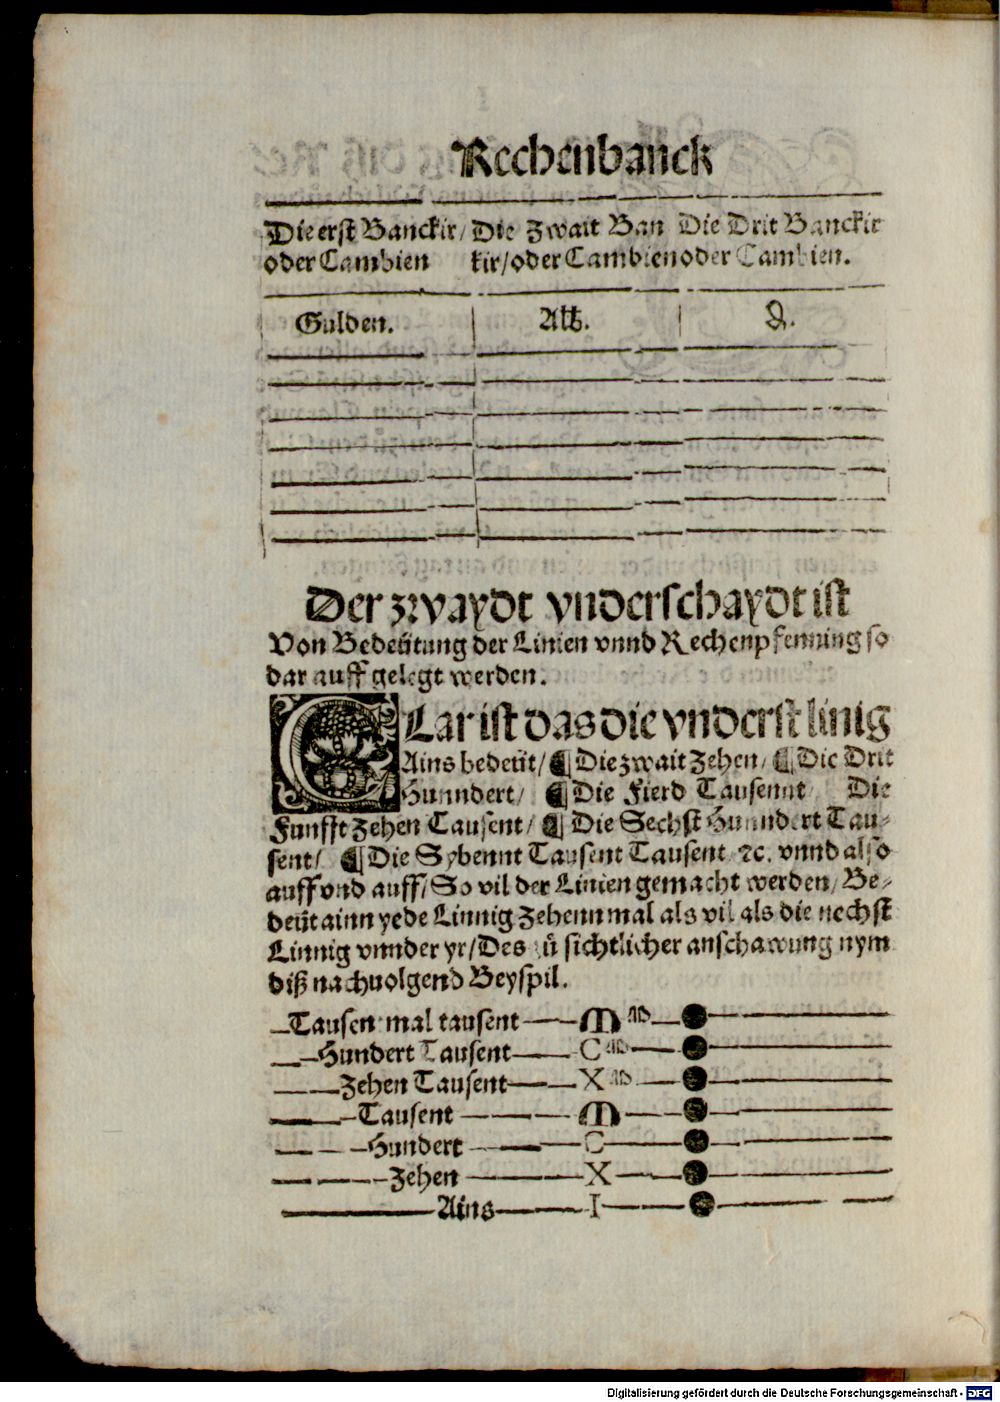 Rechenbanck
Die erst Banckir/ Die Zwait Ban Die Drit Banckir
oder Cambien kir/oder Cambien oder Cambien.
Gulden. Alb. ₰.
Der zwaydt vnderschaydt ist
Von Bedeütung der Linien vnnd Rechenpfenning so
dar auff gelegt werden.
CLar ist das die vnderst linig
Ains bedeüt/ ¶ Die zwait Zehen/ ¶ Die Drit
Hunndert/ ¶ Die Fierd Tausennt/ Die
Funfft Zehen Tausent/ ¶ Die Sechst Hunndert Tau-
sent/ ¶ Die Sybennt Tausent Tausent ꝛc. vnnd also
auff vnd auff/ So vil der Linien gemacht werden/ Be-
deüt ainn yede Linnig Zehenn mal als vil als die nechst
Linnig vnnder yr/ Des zü sichtlicher anschawung nym
diß nachuolgend Beyspil.
Tausen mal tausent M M
Hundert Tausent C M
Zehen Tausent X M
Tausent M
Hundert C
Zehen X
Ains I
Digitalisierung gefördert durch die Deutsche Forschungsgemeinschaft - DFG